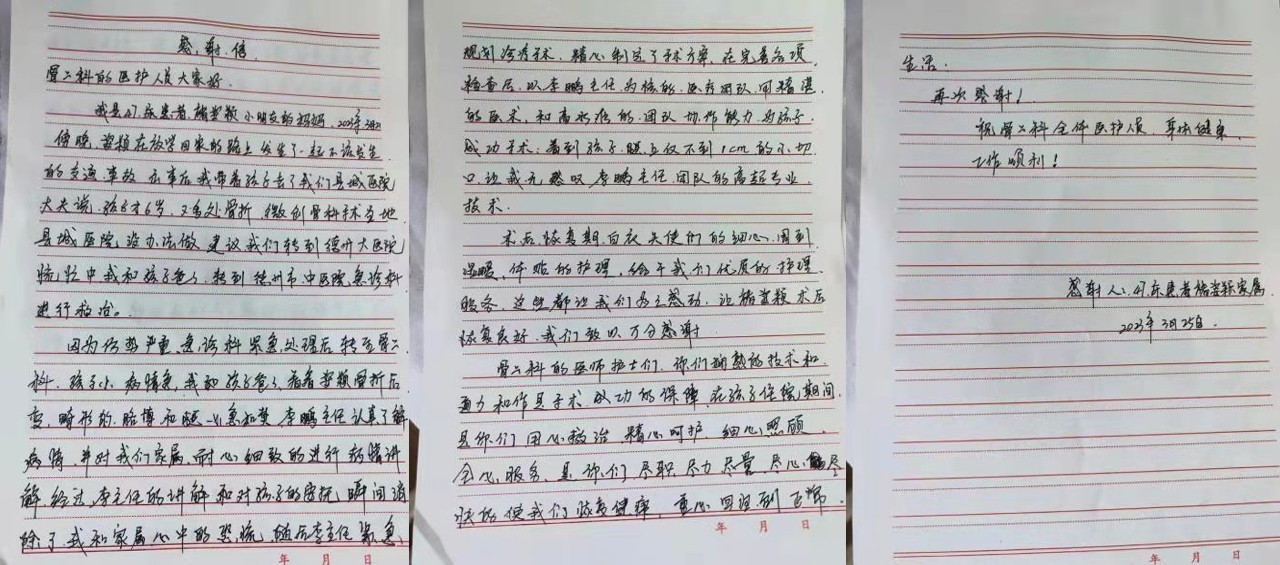 感谢信
骨二科的医护人员大家好.
我是47床患者 小朋友的妈妈, 2023年3月21
傍晚, 在放学回来的路上发生了一起不该发生
的交通事故 出事后我带着孩子去了我们县城医院
大夫说, 孩子才6岁, 又多处骨折, 微创骨科手术当地
县城医院没办法做 建议我们转到德州大医院
慌忙中我和孩子爸爸, 转到德州市中医院急诊科
进行救治。
因为伤势严重, 急诊科紧急处理后转至骨二
科. 孩子小, 病情急, 我和孩子爸爸看着 骨折后
变畸形的胳膊和腿 心急如焚 李鹏主任认真了解
病情, 并对我们家属, 耐心细致的进行病情讲
解 经过李主任的讲解和对孩子的 瞬间消
除了我和家属心中的恐慌, 随后李主任 紧急,
年 月 日
规划 手术, 精心制定了手术方案, 在完善各项
检查后, 以李鹏主任为核的医疗团队, 用精湛
的医术, 和高水准的团队协作能力 为孩子
成功手术: 看到孩子 仅不到1cm的小切
口 让我无 叹, 李鹏主任团队的高超专业
技术.
术后恢复期, 白衣天使们的细心, 周到
温暖, 体贴的护理, 给予我们优质的护理
服务. 这些都让我们为之感动, 让 术后
恢复良好. 我们致以万分感谢
骨二科的医师护士们, 你们娴熟的技术和
通力和作是手术成功的保障, 在孩子住院期间
是你们用心救治 精心呵护, 细心照顾,
全心服务, 是你们尽职 尽力 尽量, 尽心 尽
的使我们恢复健康, 重心回 到正常
年 月 日
生活.
再次感谢!
祝骨二科全体医护人员, 身体健康,
工作顺利!
感谢人: 47床患者 家属
2023年3月25日.
年 月 日